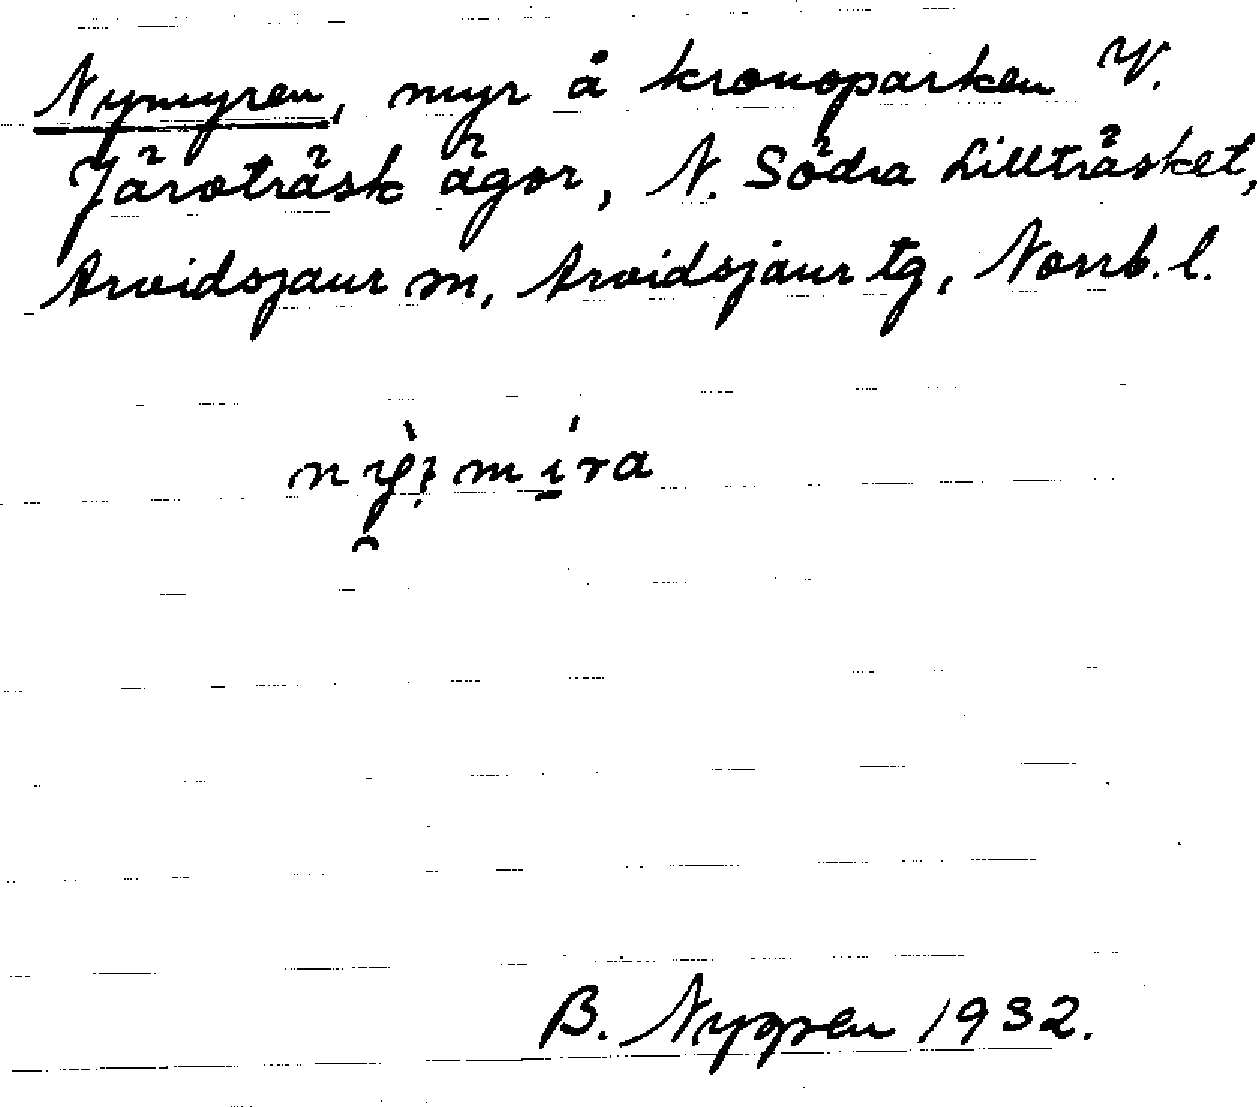 Nymyren, myr å kronoparken V.
Järvträsk ägor, N. Södra Lillträsket,
Arvidsjaur sn, Arvidsjaur tg, Norrb. l.
B. Nygren 1932.